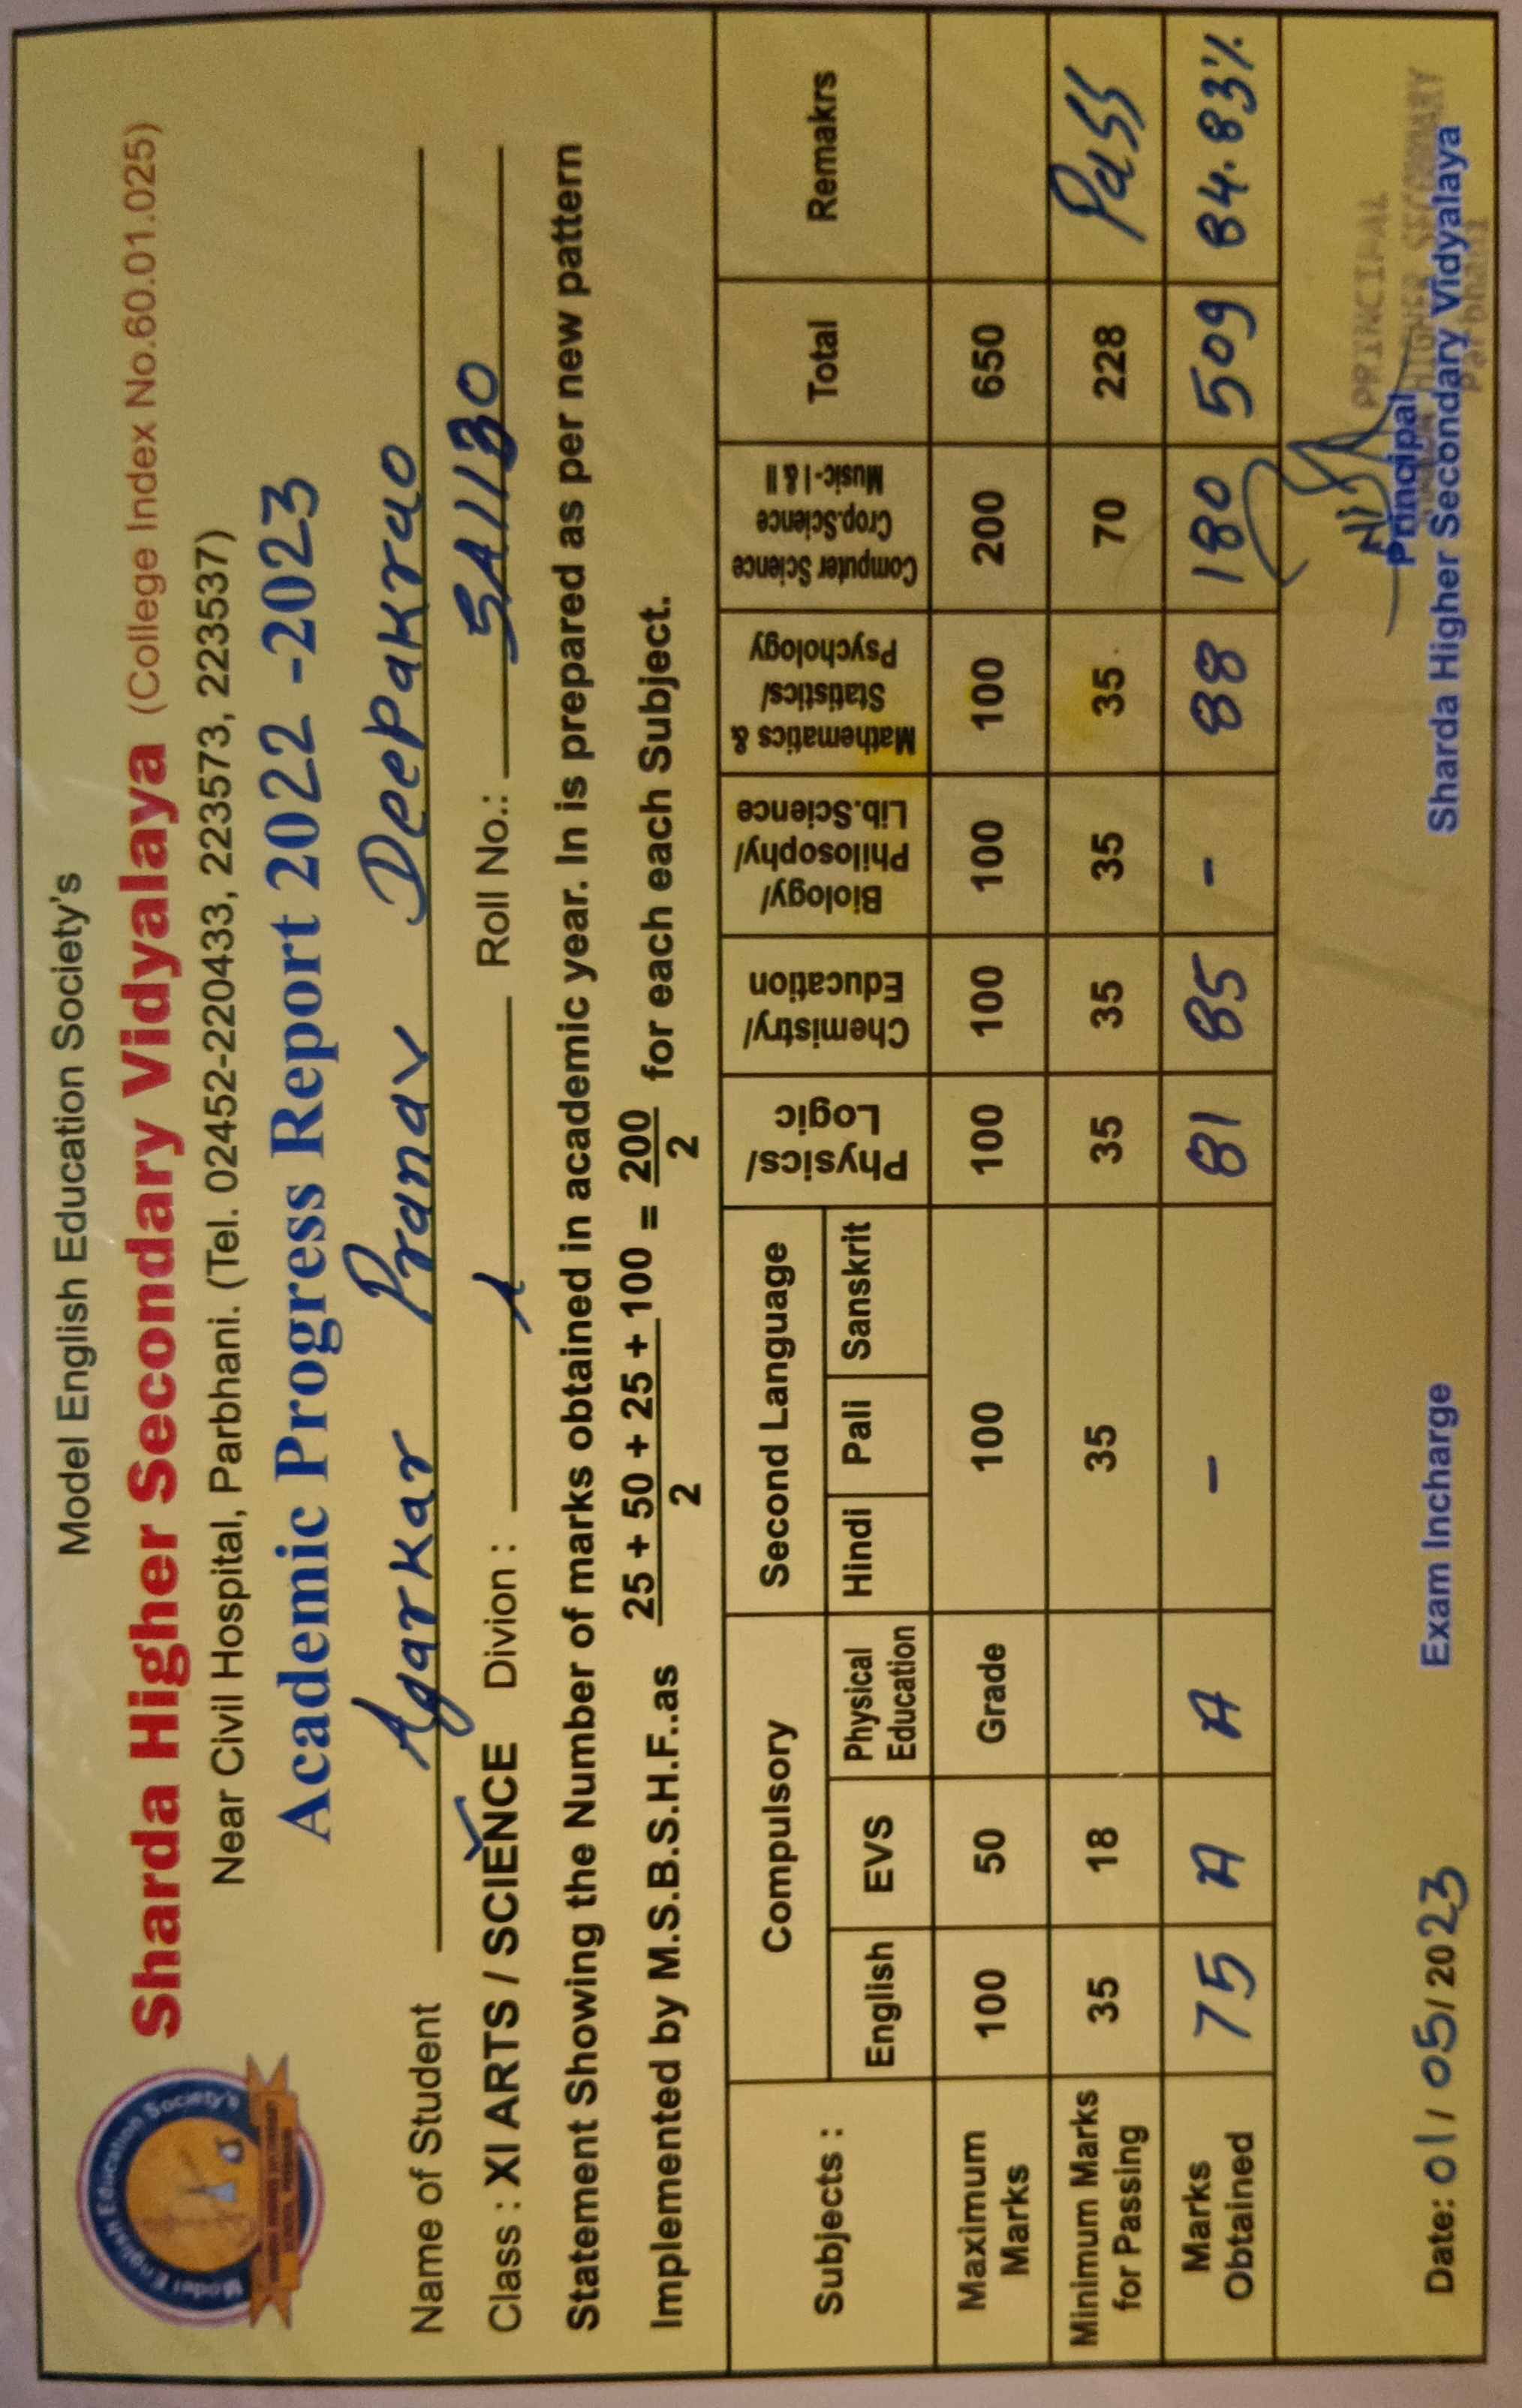 Model English Education Society's
Sharda Higher Secondary Vidyalaya (College Index No.60.01.025)
Near Civil Hospital, Parbhani. (Tel. 02452-220433, 223573, 223537)
Academic Progress Report 2022 -2023
Name of Student Agarkar Pranav Deepakrao
Class : XI ARTS / SCIENCE Divion : A Roll No.: SA1130
Statement Showing the Number of marks obtained in academic year. In is prepared as per new pattern
Implemented by M.S.B.S.H.F..as 25 + 50 + 25 + 25 + 100 / 2 = 200 / 2 for each each Subject.
Subjects : Compulsory Second Language Physics/ Logic Chemistry/ Education Biology/ Philosophy/ Lib.Science Mathematics & Statistics/ Psychology Computer Science Crop.Science Music-I & II Total Remakrs
English EVS Physical Education Hindi Pali Sanskrit
Maximum Marks 100 50 Grade 100 100 100 100 100 200 650
Minimum Marks for Passing 35 18 35 35 35 35 35 70 228 Pass
Marks Obtained 75 A A - 81 85 - 88 180 509 84.83%
PRINCIPAL
HIGHER SECONDARY
Parbhani
Date: 01/05/2023 Exam Incharge Principal
Sharda Higher Secondary Vidyalaya
Model English Education Society's